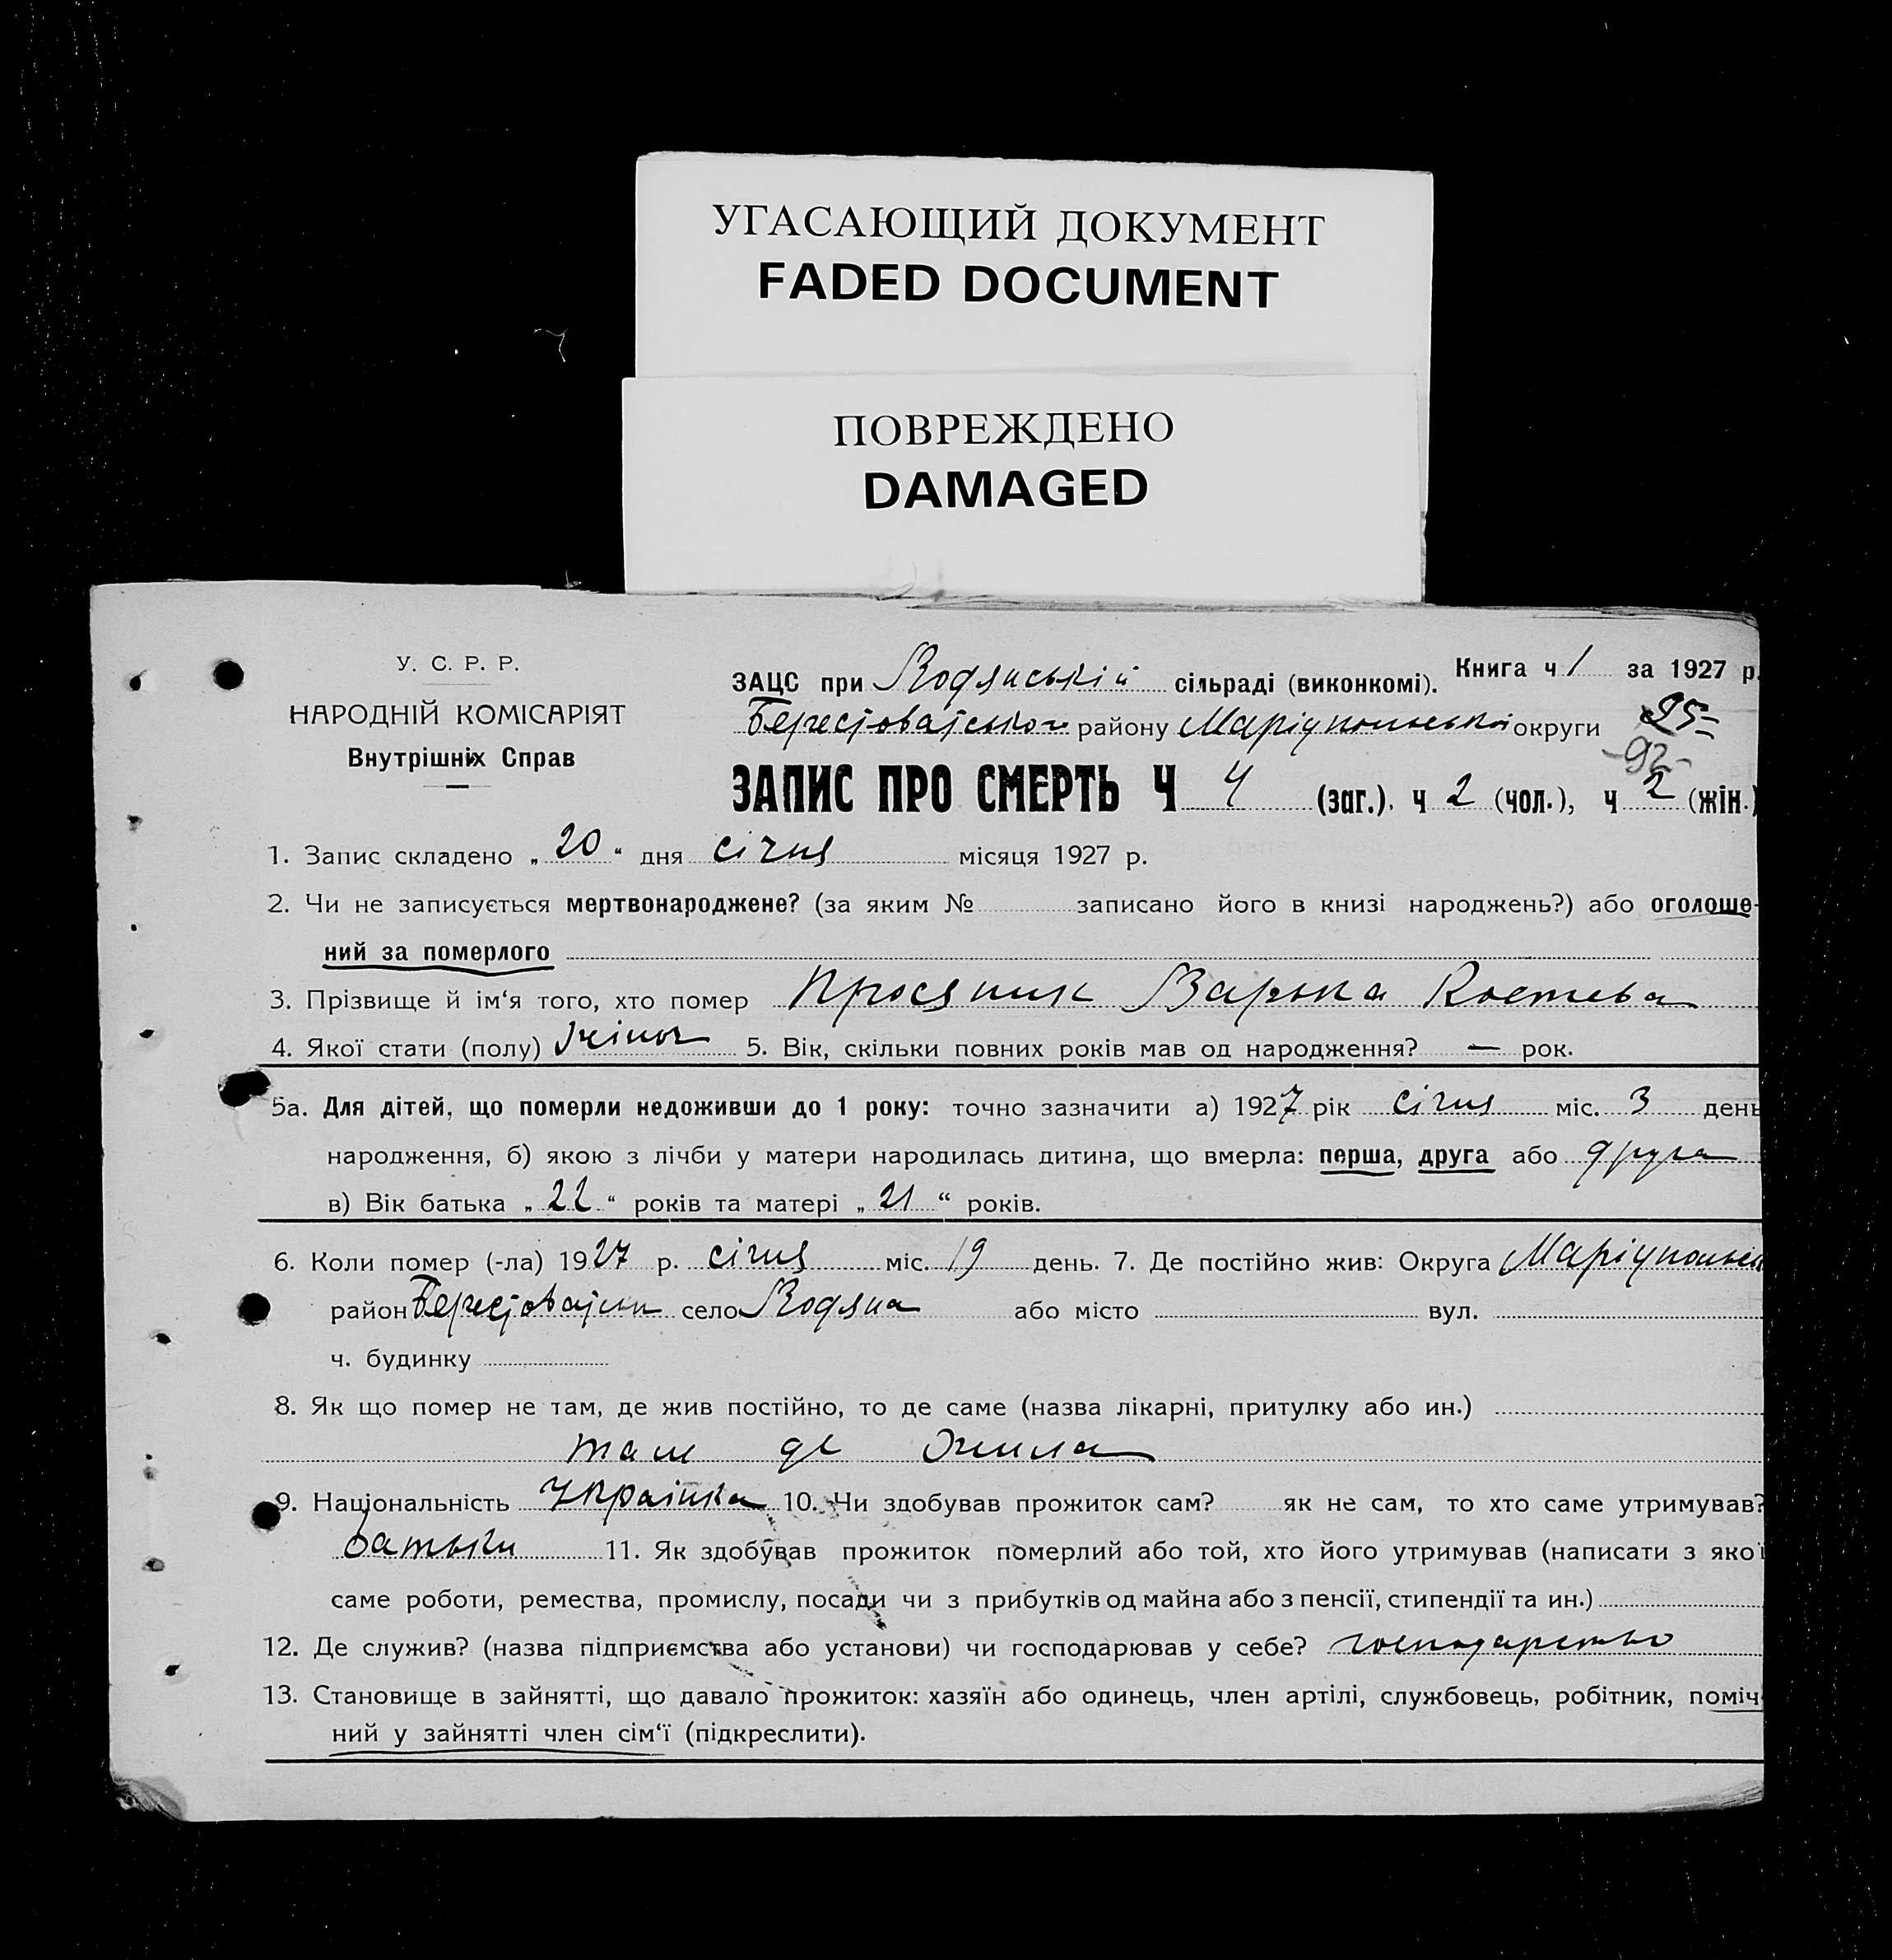 УГАСАЮЩИЙ ДОКУМЕНТ
FADED DOCUMENT
ПОВРЕЖДЕНО
DAMAGED
У. С. Р. Р.
НАРОДНІЙ КОМІСАРІЯТ
Внутрішніх Справ
ЗАЦС при Водянській сільраді (виконкомі). Книга ч 1 за 1927 р.
Берестоватського району Маріупольської округи 25=
-92-
ЗАПИС ПРО СМЕРТЬ Ч 4 (заг.). ч 2 (чол.), ч 2 (жін.)
1. Запис складено „ 20 “ дня січня місяця 1927 р.
2. Чи не записується мертвонароджене? (за яким № записано його в книзі народжень?) або оголоше-
ний за померлого
3. Прізвище й ім‘я того, хто помер Просяник Варька Костева
4. Якої стати (полу) жіноч 5. Вік, скільки повних років мав од народження? — рок.
5а. Для дітей, що померли недоживши до 1 року: точно зазначити а) 1927 рік січня міс. 3 день
народження, б) якою з лічби у матери народилась дитина, що вмерла: перша, друга або друга
в) Вік батька „ 22 “ років та матері „ 21 “ років.
6. Коли помер (-ла) 1927 р. січня міс. 19 день. 7. Де постійно жив: Округа Маріупольськ
район Берестоватськ село Водяна або місто вул.
ч. будинку
8. Як що помер не там, де жив постійно, то де саме (назва лікарні, притулку або ин.)
там де жила
9. Національність Українка 10. Чи здобував прожиток сам? як не сам, то хто саме утримував?
батьки 11. Як здобував прожиток померлий або той, хто його утримував (написати з якої
саме роботи, ремества, промислу, посади чи з прибутків од майна або з пенсії, стипендії та ин.)
12. Де служив? (назва підприємства або установи) чи господарював у себе? господарство
13. Становище в зайнятті, що давало прожиток: хазяїн або одинець, член артілі, службовець, робітник, поміч-
ний у зайнятті член сім‘ї (підкреслити).